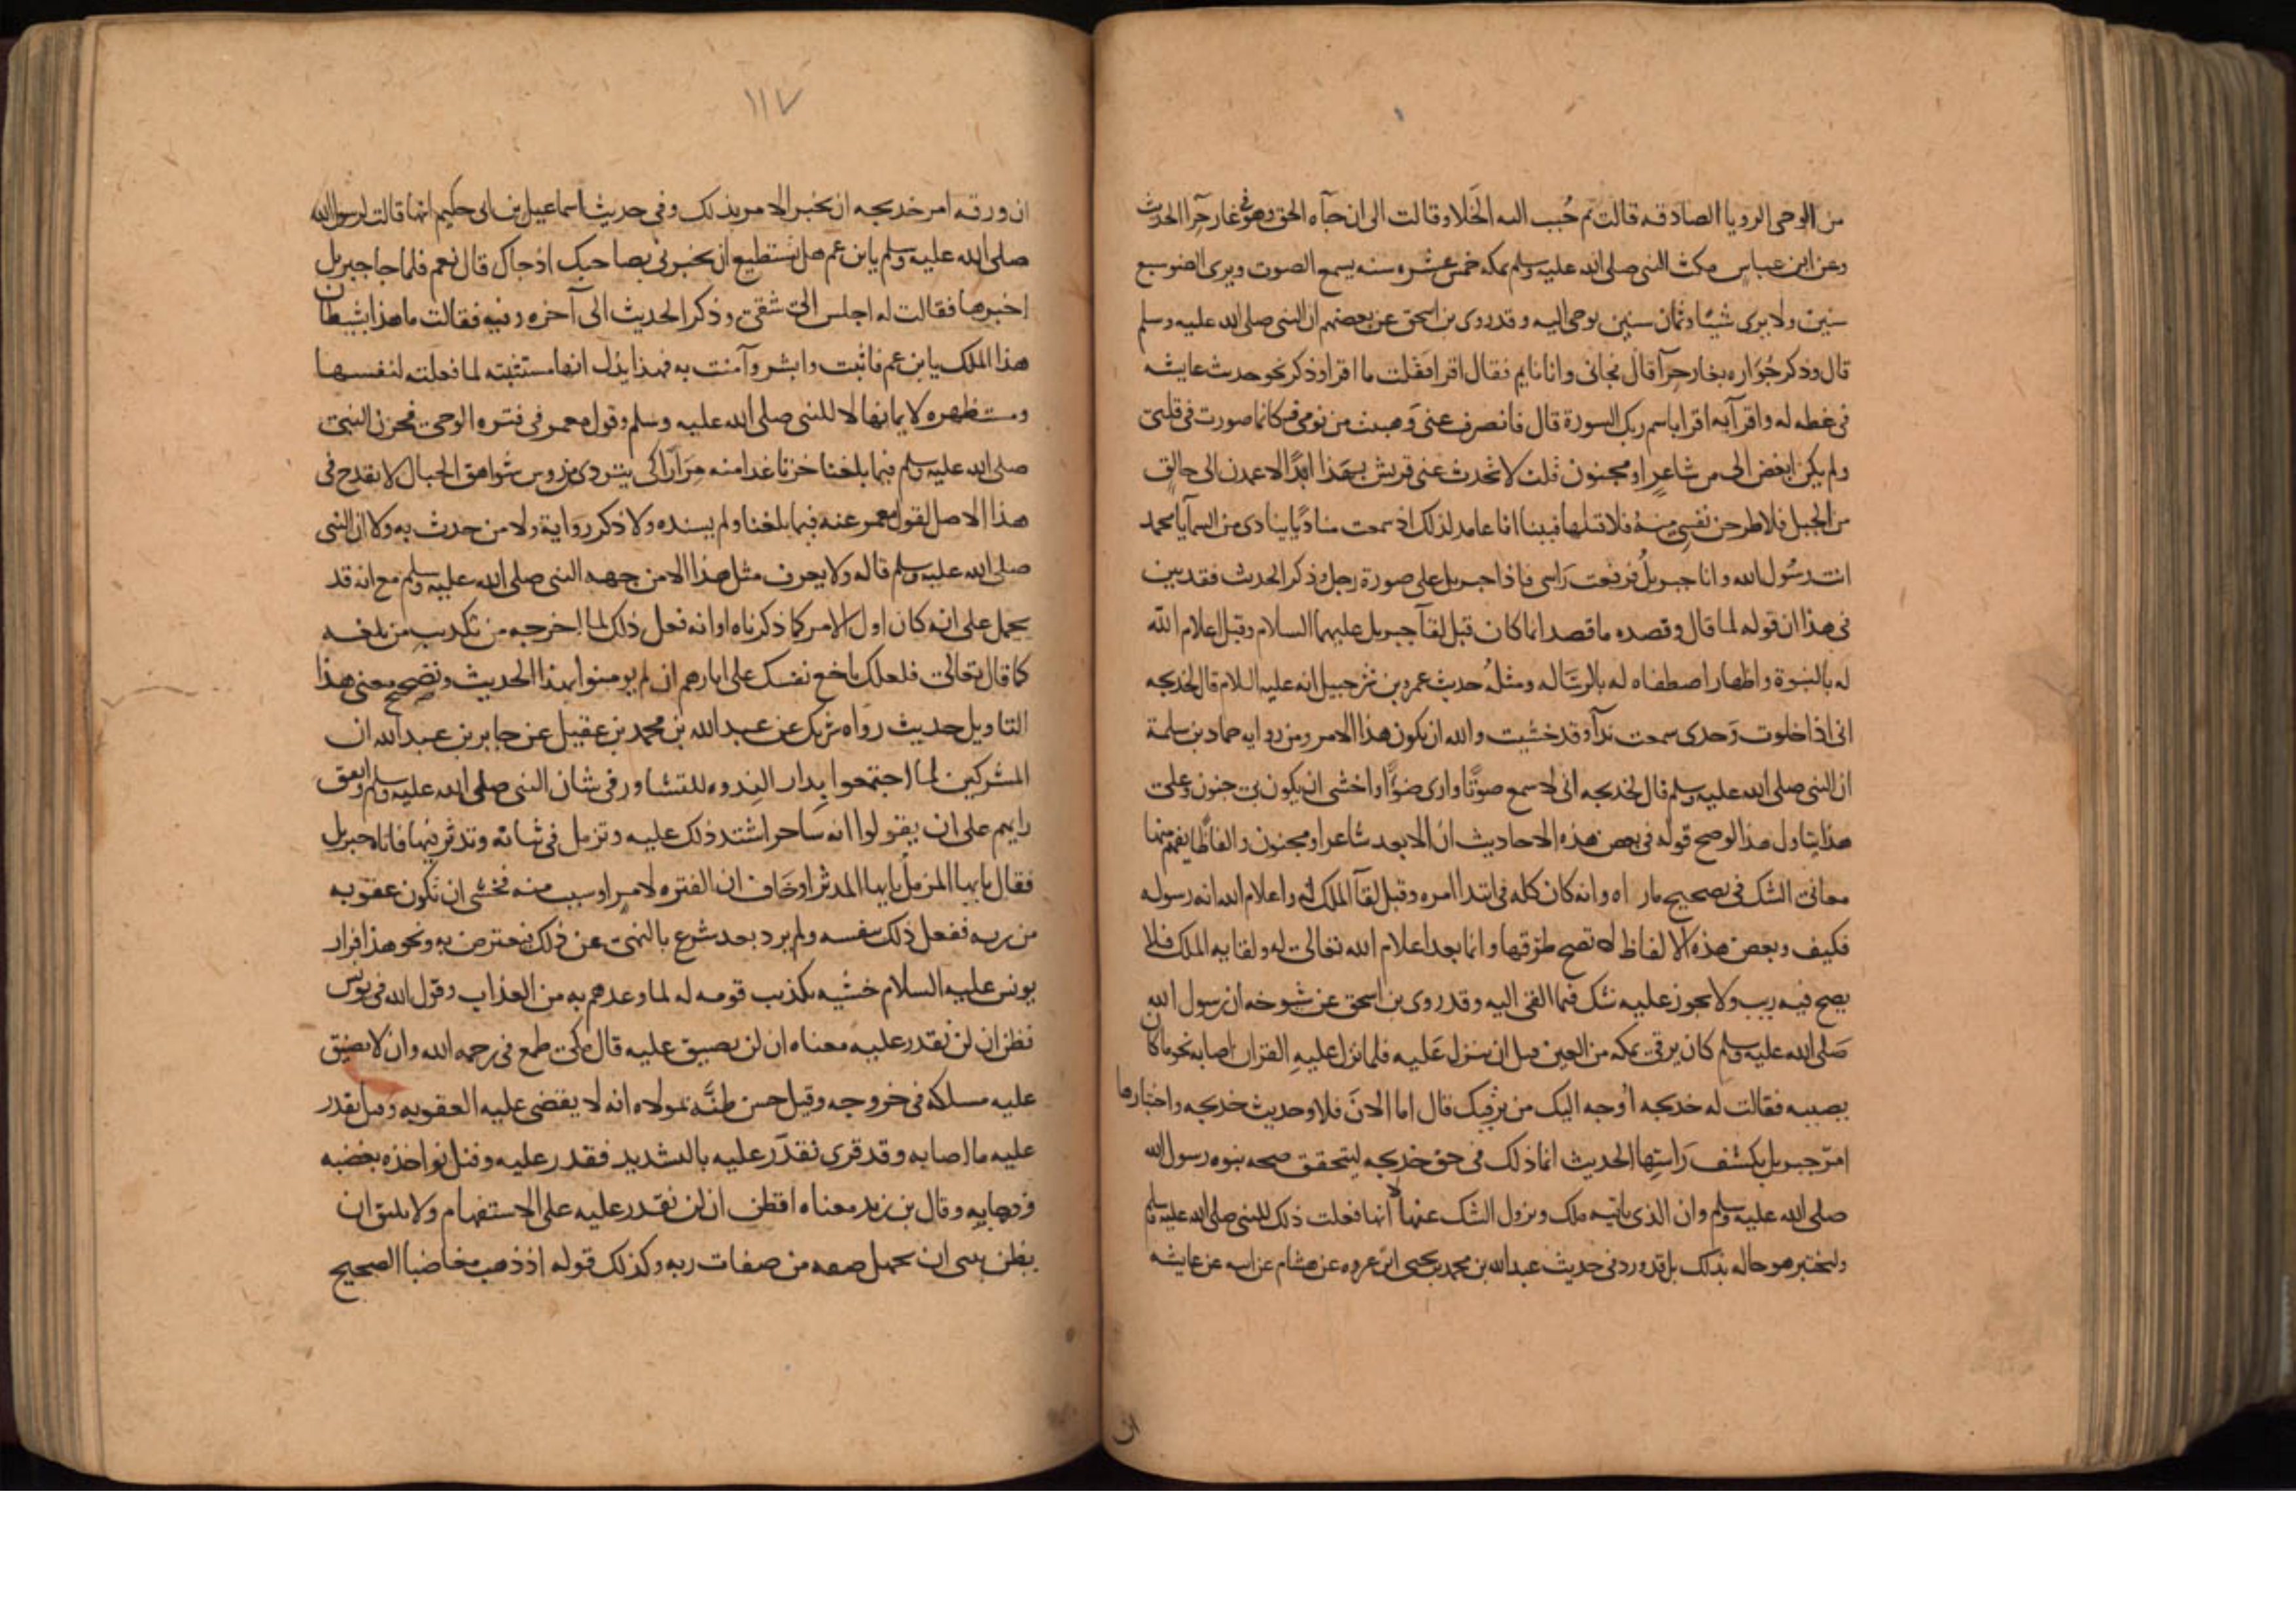 من الوحي الرويا الصادقه قالت ثم حُبب اليه الخَلا وقالت الى ان جآه الحق وهو في غار حرآ الحديث
وعن ابن عباس مكث النبي صلى الله عليه وسلم بمكه خمس عشره سنه يسمع الصوت ويرى الضو سبع
سنين ولا يرى شيئا وثمان سنين يوحى اليه وقد روى بن اسحق عن بعضهم ان النبي صلى الله عليه وسلم
قال وذكر جُوَاره بغار حِرآ قال فجانى وانا نايم فقال اقرا فقلت ما اقرا وذكر نحو حديث عايشه
في غطه له واقرآيه اقرا باسم ربك السورة قال فانصرف عنى وَهببت من نومي فكانما صورت في قلبي
ولم يكن ابغض الى من شاعرٍ او مجنون قلت لا تحدث عنى قريش بهَذا ابدًا لاعمدن الى حالق
من الجبل فلاطرحن نفسي مِنهُ فلاقتلها فبينا انا عامد لذلك اذ سمعت مناديًا ينادى من السمآ يا محمد
انت رسُول الله وانا جبريلُ فرفعت رَاسى فاذا جبريل على صورة رجل وذكر الحديث فقد بين
في هذا ان قوله لما قال وقصده ما قصد انما كان قبل لقآ جبريل عليهما السلام وقبل اعلام الله
له بالنبوة واظهار اصطفاه له بالرسَاله ومثلُه حديث عمرو بن شرحبيل انه عليه السلام قال لخديجه
انى اذا خلوت وَحدى سمعت ندآ وقد خشيت والله ان يكون هذا الامر ومن روايه حماد بن سلمة
ان النبي صلى الله عليه وسلم قال لخديجه انى لاسمع صوتًا وارى ضوًا واخشى ان يكون بي جنون وعلى
هذا يتاول هذا لو صح قوله في بعض هذه الاحاديث ان الابعد شاعر او مجنون والفاظًا يفهم منها
معانى الشك في تصحيح مار اه وانه كان كله في ابتدا امره وقبل لقآ الملك له واعلام الله انه رسوله
فكيف وبعض هذه الالفاظ لا تصح طرُقها واما بعد اعلام الله تعالى له ولقايه الملك فلا
يصح فيه ريب ولا يجوز عليه شك فيما القى اليه وقد روى بن اسحق عن شيوخه ان رسول الله
صَلى الله عليه وسلم كان يرقى بمكه من العين قبل ان ينزل عَليه فلما نزل عليهِ القران اصابه نحو ما كان
يصيبه فقالت له خديجه اُوجه اليك من يَرقيك قال اما الانَ فلا وحديث خديجه واختبارها
امرَ جبريل بكشف رَاسِها الحديث انما ذلك في حق خديجه ليتحقق صحه نبوه رسول الله
صلى الله عليه وسلم وان الذى ياتيه ملك ويزول الشك عنها لا انها فعلت ذلك للنبي صلى الله عليه وسلم
وليختبر هو حاله بذلك بل قد ورد في حديث عبدالله بن محمد بن يحيى ابن عروه عن هشام عن ابيه عن عايشه
ان
١١٧
ان ورقه امر خديجه ان تخبر الامر بذلك وفي حديث اسماعيل بن ابي حكيم انها قالت لرسول الله
صلى الله عليه وسلم يا بن عم هل تستطيع ان تخبرنى بصاحبك اذ جاك قال نعم فلما جا جبريل
اخبرها فقالت له اجلس الى شقى وذكر الحديث الى آخره وفيه فقالت ما هذا بشيطان
هذا الملك يا بن عم فاثبت وابشر وآمنت به فهذا يدل انها مستثبته لما فعلته لنفسها
ومستظهره لايمانها لا للنبي صلى الله عليه وسلم وقول معمر في فتره الوحي فحزن النبي
صلى الله عليه وسلم فيما بلغنا حزنا غدا منه مِرَارًا كى يتردى من روس شواهق الجبال لا يقدح في
هذا الاصل لقول معمر عنه فيما بلغنا ولم يسنده ولا ذكر رواية ولا من حدث به ولا ان النبي
صلى الله عليه وسلم قاله ولا يعرف مثل هذا الا من جهه النبي صلى الله عليه وسلم مع انه قد
يحمل على انه كان اول الامر كما ذكرناه او انه فعل ذلك لما اخرجه من تكذيب من بلغه
كما قال تعالى فلعلك باخع نفسك على اثارهم ان لم يومنوا بهذا الحديث وتصحح معنى هذا
التاويل حديث رواه شريك عن عبدالله بن محمد بن عقيل عن جابر بن عبدالله ان
المشركين لما اجتمعوا بدار الندوه للتشاور في شان النبي صلى الله عليه وسلم واتفق
رايهم على ان يقولوا انه سَاحر اشتد ذلك عليه وتزمل في ثيابه وتدثر فيها فاتاه جبريل
فقال يا يها المزمل يا يها المدثر او خَاف ان الفتره لامر او سبب منه فخشى ان تكون عقوبه
من ربه ففعل ذلك بنفسه ولم يرد بعد شرع بالنهى عن ذلك فيعترض به ونحو هذا فرار
يونس عليه السلام خشيه تكذيب قومه له لما وعدهم به من العذاب وقول الله في يونس
فظن ان لن نقدر عليه معناه ان لن نضيق عليه قال مكي طمع في رحمه الله وان لا يضيق
عليه مسلكه في خروجه وقيل حسن ظنَّه بمولاه انه لا يقضى عليه العقوبه وقيل نقدر
عليه ما اصابه وقد قرى نقدّر عليه بالتشديد فقدر عليه وقيل نواخذه بغضبه
وذهابه وقال بن زيد معناه افظن ان لن نقدر عليه على الاستفهام ولا يليق ان
يظن بنبى ان يجهل صفه من صفات ربه وكذلك قوله اذ ذهب مغاضبا الصحيح